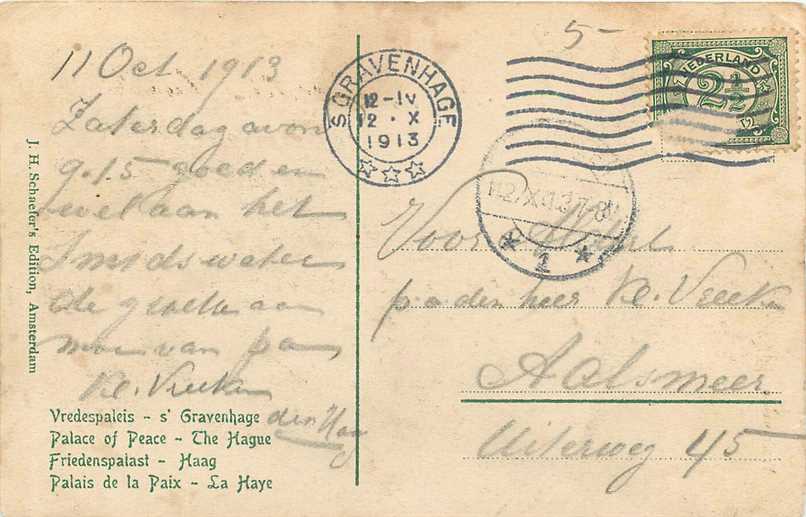 11 Oct 1913
Zaterdag avon
9.15 goed en
wel aan het
de groete aan
moe van pa
Kl. Vreeken
den Haag
Vredespaleis - s' Gravenhage
Palace of Peace - The Hague
Friedenspalast - Haag
Palais de la Paix - La Haye
J. H. Schaefer's Edition, Amsterdam
5-
'SGRAVENHAGE
12-IV
12 · X
1913
NEDERLAND
2½
1
Voor
p.a den heer Kl. Vreeken
Aalsmeer
Uiterweg 45